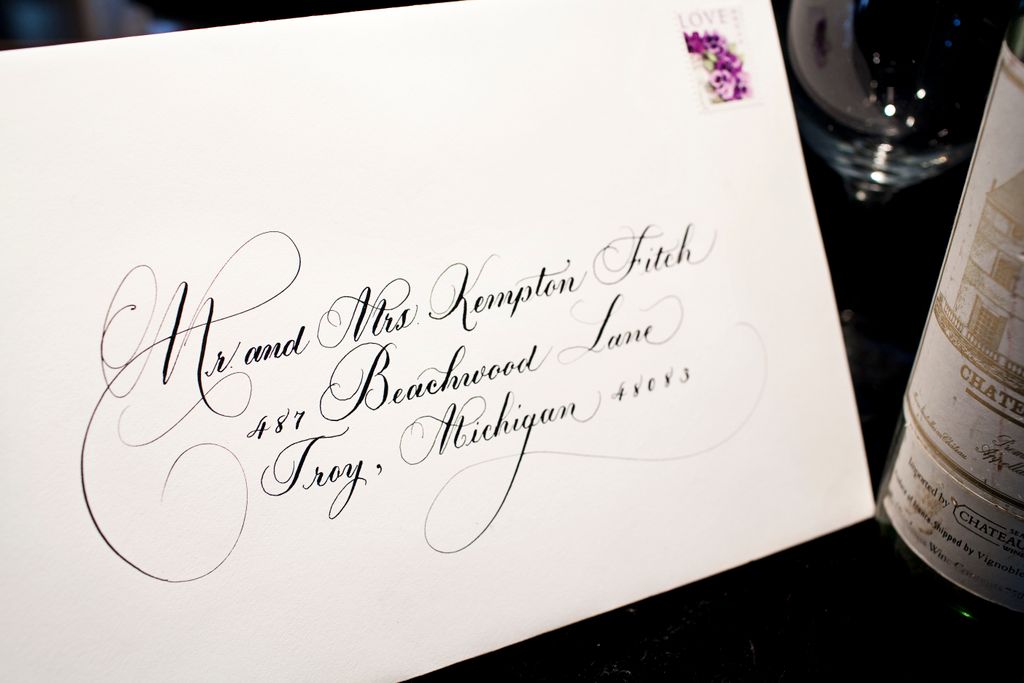 LOVE
Mr. and Mrs. Kempton Fitch
487 Beachwood Lane
Troy, Michigan 48083
CHATE
Imported by
CHATEAU
Shipped by Vignoble